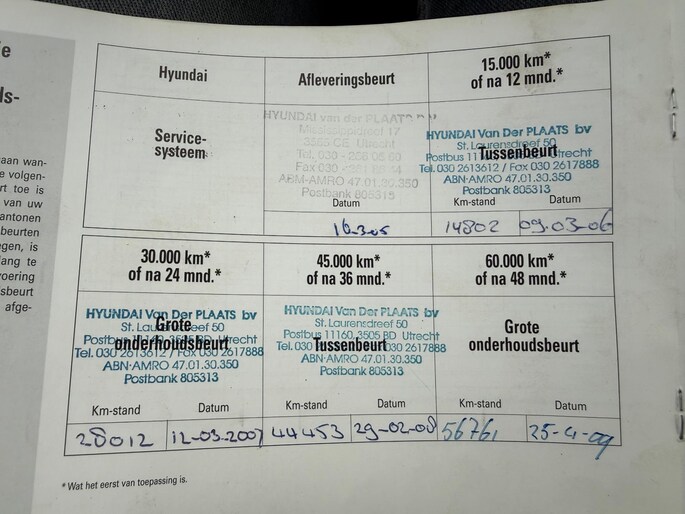 e
ls-
aan wan-
e volgen-
rt toe is
van uw
antonen
beurten
egen, is
lang te
voering
sbeurt
afge-
Hyundai
Afleveringsbeurt
15.000 km*
of na 12 mnd.*
Service-
systeem
HYUNDAI van der PLAATS bv
3565 CE Utrecht
Tel. 030 -
Fax 030 -
ABM-AMRO 47.01.30.350
Postbank 805315
Datum
16-3-05
HYUNDAI Van Der PLAATS bv
St. Laurensdreef 50
Tussenbeurt
Postbus 11160, 3505 BD Utrecht
Tel. 030 2613612 / Fax 030 2617888
ABN-AMRO 47.01.30.350
Postbank 805313
Km-stand
Datum
14802
09-03-06
30.000 km*
of na 24 mnd.*
HYUNDAI Van Der PLAATS bv
Grote
St. Laurensdreef 50
onderhoudsbeurt
Postbus 11160, 3505 BD Utrecht
Tel. 030 2613612 / Fax 030 2617888
ABN-AMRO 47.01.30.350
Postbank 805313
Km-stand
Datum
28012
12-03-2007
45.000 km*
of na 36 mnd.*
HYUNDAI Van Der PLAATS bv
St. Laurensdreef 50
Postbus 11160, 3505 BD Utrecht
Tussenbeurt
Tel. 030 2613612 / Fax 030 2617888
ABN-AMRO 47.01.30.350
Postbank 805313
Km-stand
Datum
44453
29-02-08
60.000 km*
of na 48 mnd.*
Grote
onderhoudsbeurt
Km-stand
Datum
56761
25-4-09
* Wat het eerst van toepassing is.